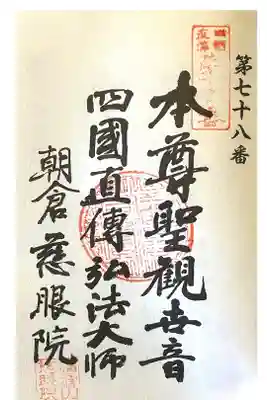 第七十八番
本尊聖観世音
四國直傳弘法大師
朝倉慈眼院